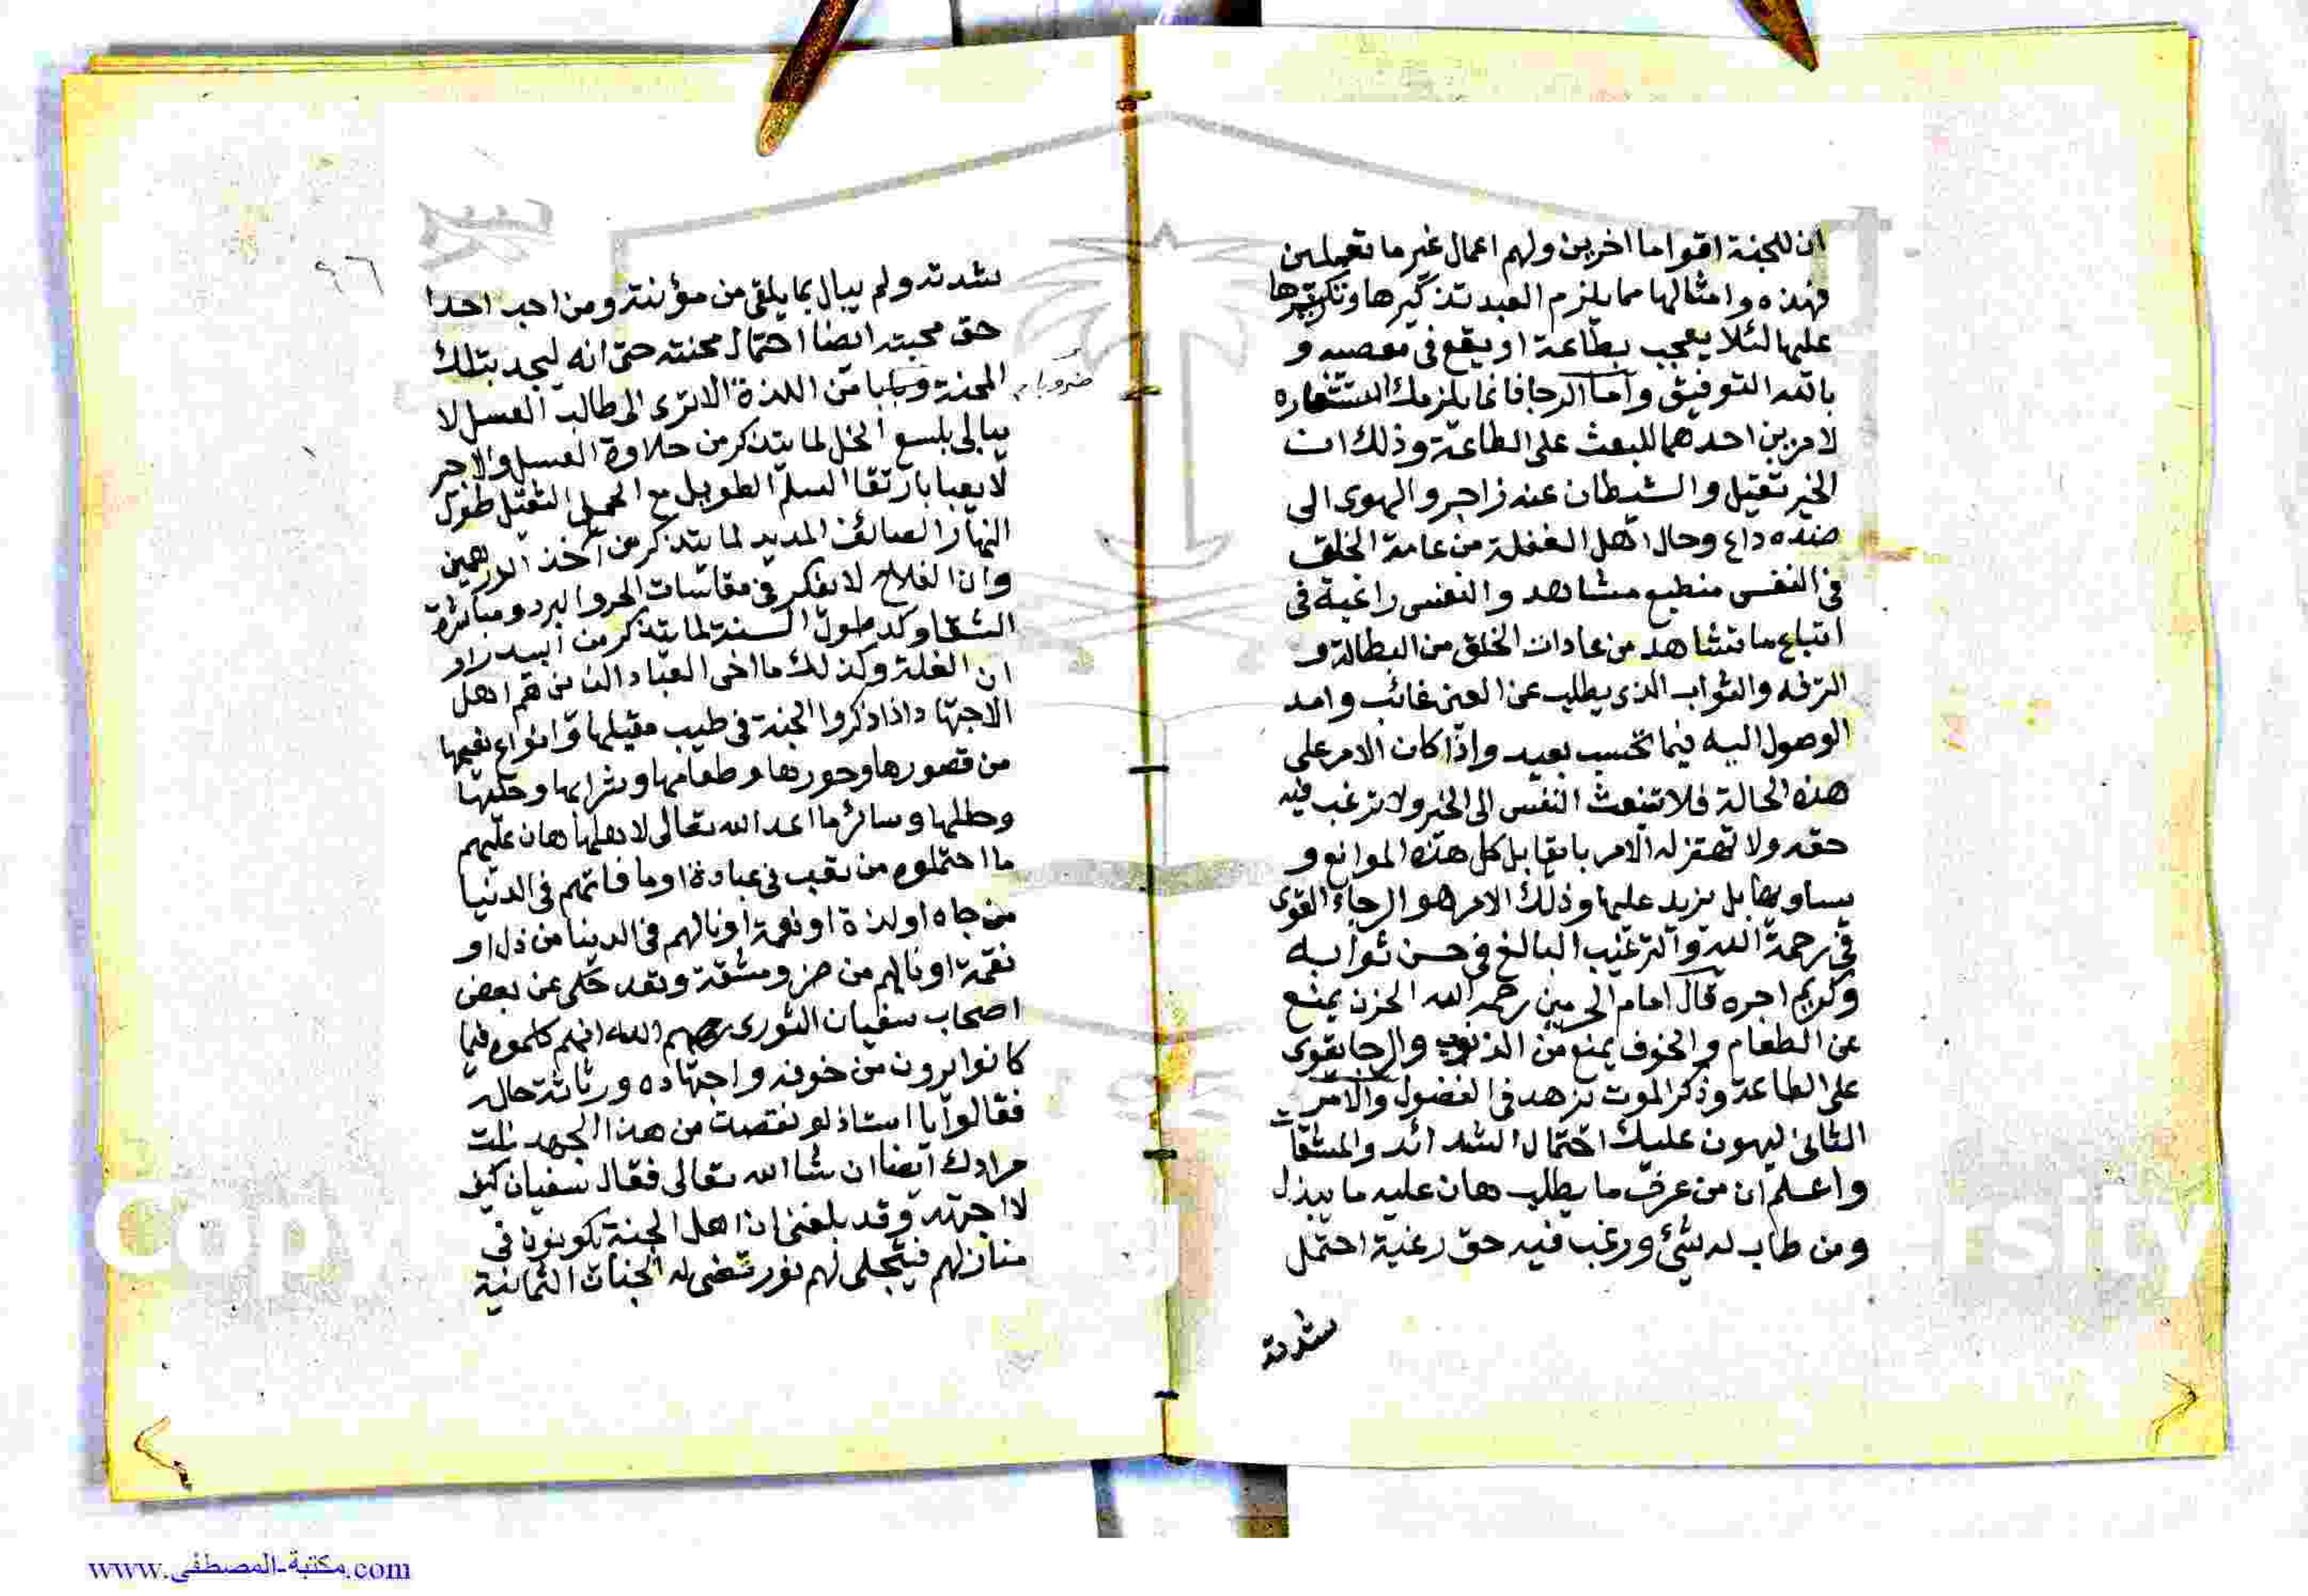 ان للجنة اقواما اخرين ولهم اعمال غير ما تعملين
فهذه وامثالها مما يلزم العبد تذكيرها وتكريرها
عليها لئلا يعجب بطاعة او يقع في معصيه و
بالله التوفيق واما الرجا فانما يلزمك استشعاره
لامرين احدهما للبعث على الطاعة وذلك ان
الخير ثقيل والشيطان عنه زاجر والهوى الى
ضده داع وحال اهل الغفلة من عامة الخلق
في النفس منطبع مشاهد والنفس راغبة في
اتباع ما تشاهد من عادات الخلق من البطالة و
الترفه والثواب الذي يطلب عن العين غائب وامد
الوصول اليه فيما تحسب بعيد واذا كان الامر على
هذه الحالة فلا تنبعث النفس الى الخير ولا ترغب فيه
حقه ولا تهتز له الامر بايقابل كل هذه الموانع و
يساويها بل يزيد عليها وذلك الامر هو الرجاء القوى
في رحمة الله والترغيب البالغ في حسن ثوابه
وكريم اجره قال امام الحرمين رحمه الله الحزن يمنع
عن الطعام والخوف يمنع من الذنوب والرجا يقوى
على الطاعة وذكر الموت يزهد في الفضول والامر
الثاني ليهون عليك احتمال الشدائد والمشقات
واعلم ان من عرف ما يطلب هان عليه ما يبذل
ومن طاب له شيئ ورغب فيه حق رغبة احتمل
شدته
٩٦
شدته ولم يبال بما يلقى من مؤنته ومن احب احدا
حق محبته ايضا احتمال محنته حتى انه ليجد بتلك
المحنة من اللذة الاترى الى طالب العسل لا
ضروبا
يبالى بلسع النحل لما يتذكر من حلاوة العسل والاجير
لا يعبا بارتقا السلم الطويل مع الحمل الثقيل طول
النهار الصائف المديد لما يتذكر من اخذ الدرهمين
وان الفلاح لا يفكر في مقاسات الحر والبرد ومباشرة
الشقا وكد طول السنة لما يتذكر من
ان الغلة وكذلك ما اخى العباد الذين هم اهل
الاجتهاد اذا ذكروا الجنة في طيب مقيلها وانواع نعيمها
من قصورها وحورها وطعامها وشرابها وحليها
وحللها وسائر ما اعد الله تعالى لاهلها هان عليهم
ما احتملوه من تعب في عبادة او ما فاتهم في الدنيا
من جاه او لذة او نعمة او نالهم في الدينا من ذل او
نقمة او نالهم من ضر ومشقة وقد حكى عن بعض
اصحاب سفيان الثورى رحمهم الله انهم كلموه فيما
كانوا يرون من خوفه واجتهاده ورثاثة حاله
فقالوا يا استاذ لو نقصت من هذا الجهد نلت
مرادك ايضا ان شا الله تعالى فقال سفيان كيف
لا اجتهد وقد بلغنى ان اهل الجنة يكونون في
منازلهم فيتجلى لهم نور تضى له الجنات الثمانية
www.مكتبة-المصطفى.com